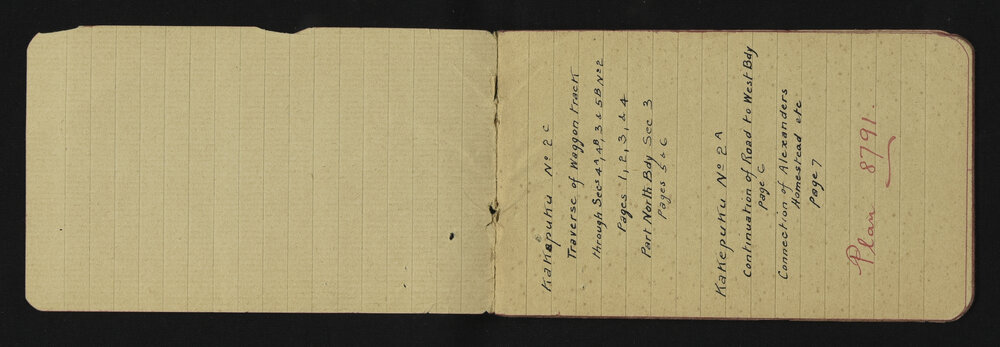 Kakepuku No 2 C
Traverse of Waggon track
through Secs 4A, 4B, 3 & 5B No 2
Pages 1, 2, 3, & 4
Part North Bdy Sec 3
pages 5 & 6
Kakepuku No 2 A
Continuation of Road to West Bdy
page
Connection of Alexanders
Homestead etc
page 7
Plan 8791.